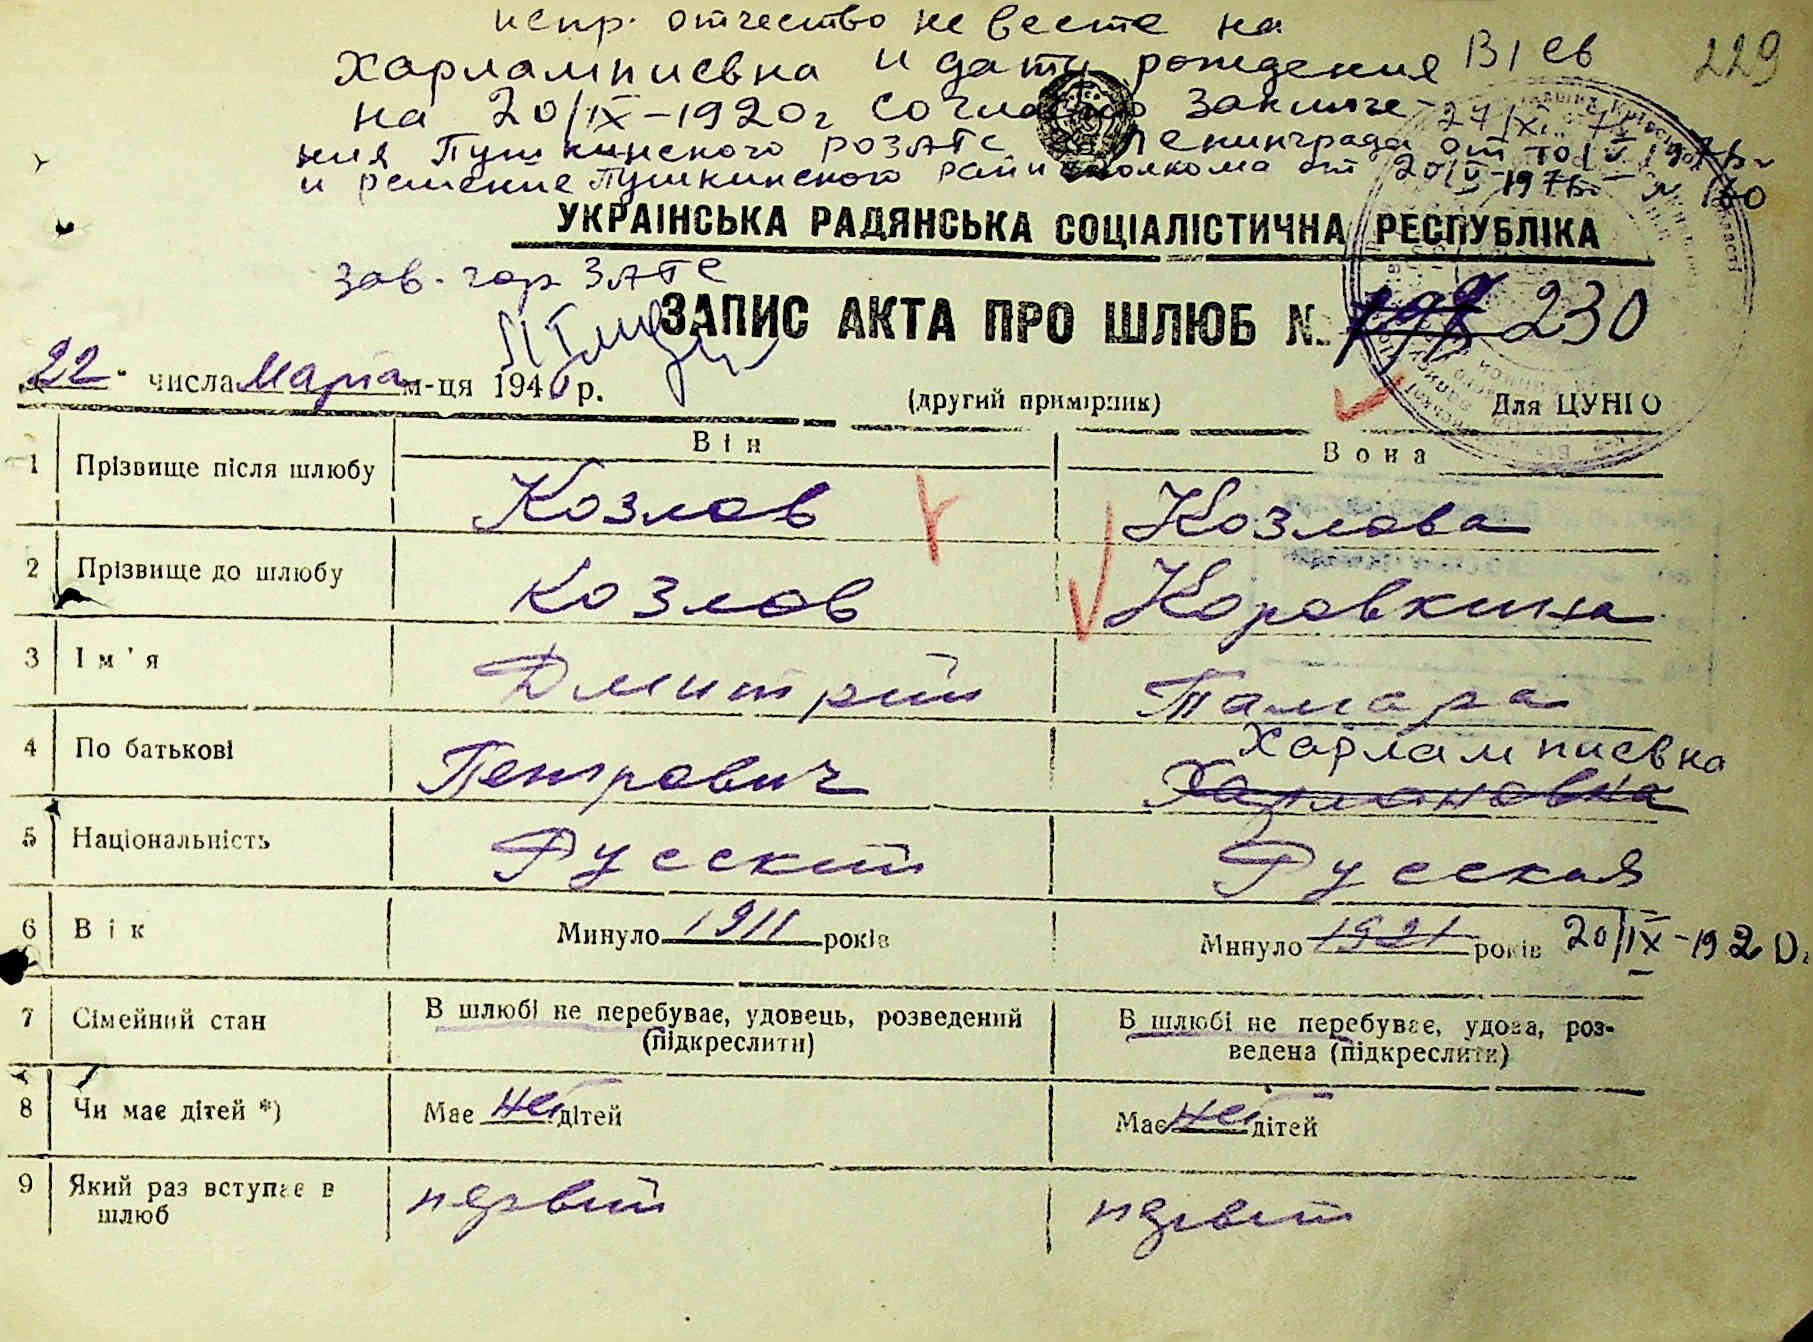 испр. отчество невесте на
Харлампиевна и дату рождения
229
на 20/IX-1920г согласно заключе-
ния Пушкинского розагс Ленинграда от 10/V 197
и решение Пушкинского райисполкома от 20/V-197 N
УКРАЇНСЬКА РАДЯНСЬКА СОЦІАЛІСТИЧНА РЕСПУБЛІКА
зав. гор ЗАГС
ЗАПИС АКТА ПРО ШЛЮБ № 230
22 числа Марта м-ця 194 р.
(другий примірник)
Для ЦУНГО
Він Вона
1 Прізвище після шлюбу Козлов Козлова
2 Прізвище до шлюбу Козлов Коровкина
3 Ім'я Дмитрий Тамара
Харлампиевна
4 По батькові Петрович Харлановна
5 Національність Русский Русская
6 Вік Минуло 1911 років Минуло 1921 років 20/IX-1920г
7 Сімейний стан В шлюбі не перебуває, удовець, розведений В шлюбі не перебуває, удова, роз-
(підкреслити) ведена (підкреслити)
8 Чи має дітей *) Має нет дітей Має нет дітей
9 Який раз вступає в первый первый
шлюб